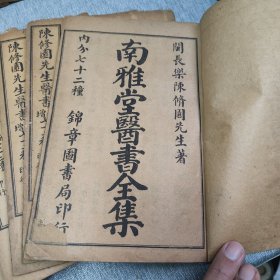 閩長樂陳脩園先生著
南雅堂醫書全集
內分七十二種
錦章圖書局印行
陳修園先生醫書
陳修園先生醫書